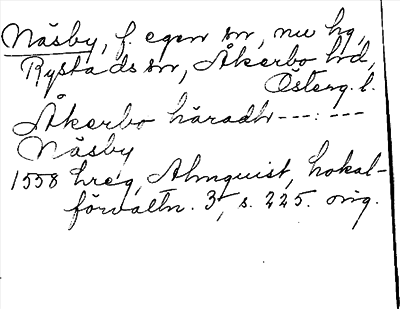 Näsby, f. egen sn, nu hg,
Rystads sn, Åkerbo hd,
Österg. l.
Åkerbo häradh ---:---
Näsby
1558 hreg, Almquist, Lokal-
förvaltn. 3, s. 225. orig.